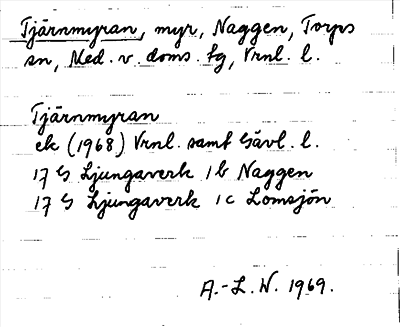 Tjärnmyran, myr, Naggen, Torps
sn, Med. v. doms. tg, Vrnl. l.
Tjärnmyran
ek (1968) Vrnl. samt Gävl. l.
17 G Ljungaverk 1 b Naggen
17 G Ljungaverk 1 c Lomsjön
A.-L. W. 1969.